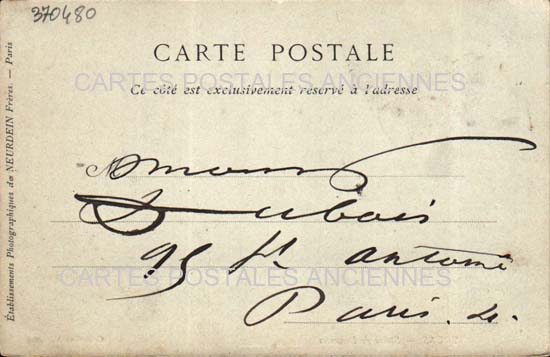 370480
CARTE POSTALE
CARTES POSTALES ANCIENNES
Ce côté est exclusivement réservé à l'adresse
Établissements Photographiques de NEURDEIN Frères. — Paris
Dubois
95 ft antoine
CARTES POSTALES ANCIENNES
Paris. 4.